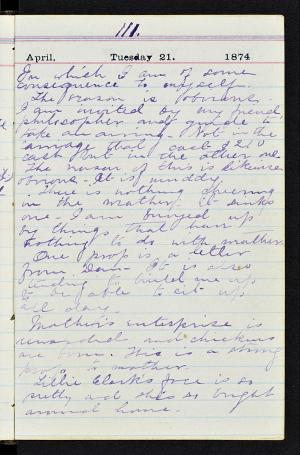 111.
April. Tuesday 21. 1874
In which I am of some
consequence to myself.
The reason is obvious.
I am invited by my friend
philosopher and guide to
take an airing. Not in the
carriage that cost $20
cash but in the other one
The reason of this is likewise
obvious. It is muddy.
There is nothing cheering
in the weather. It sinks
one. I am buoyed up
by things that have
nothing to do with weather.
One prop is a letter
from Dav It is also
tending to build me up
to be able to sit up
all day.
Mother's enterprise is
rewarded and chickens
are born. This is a strong
prop to mother.
Lillie Clark's face is so
pretty and she's so bright
around home.